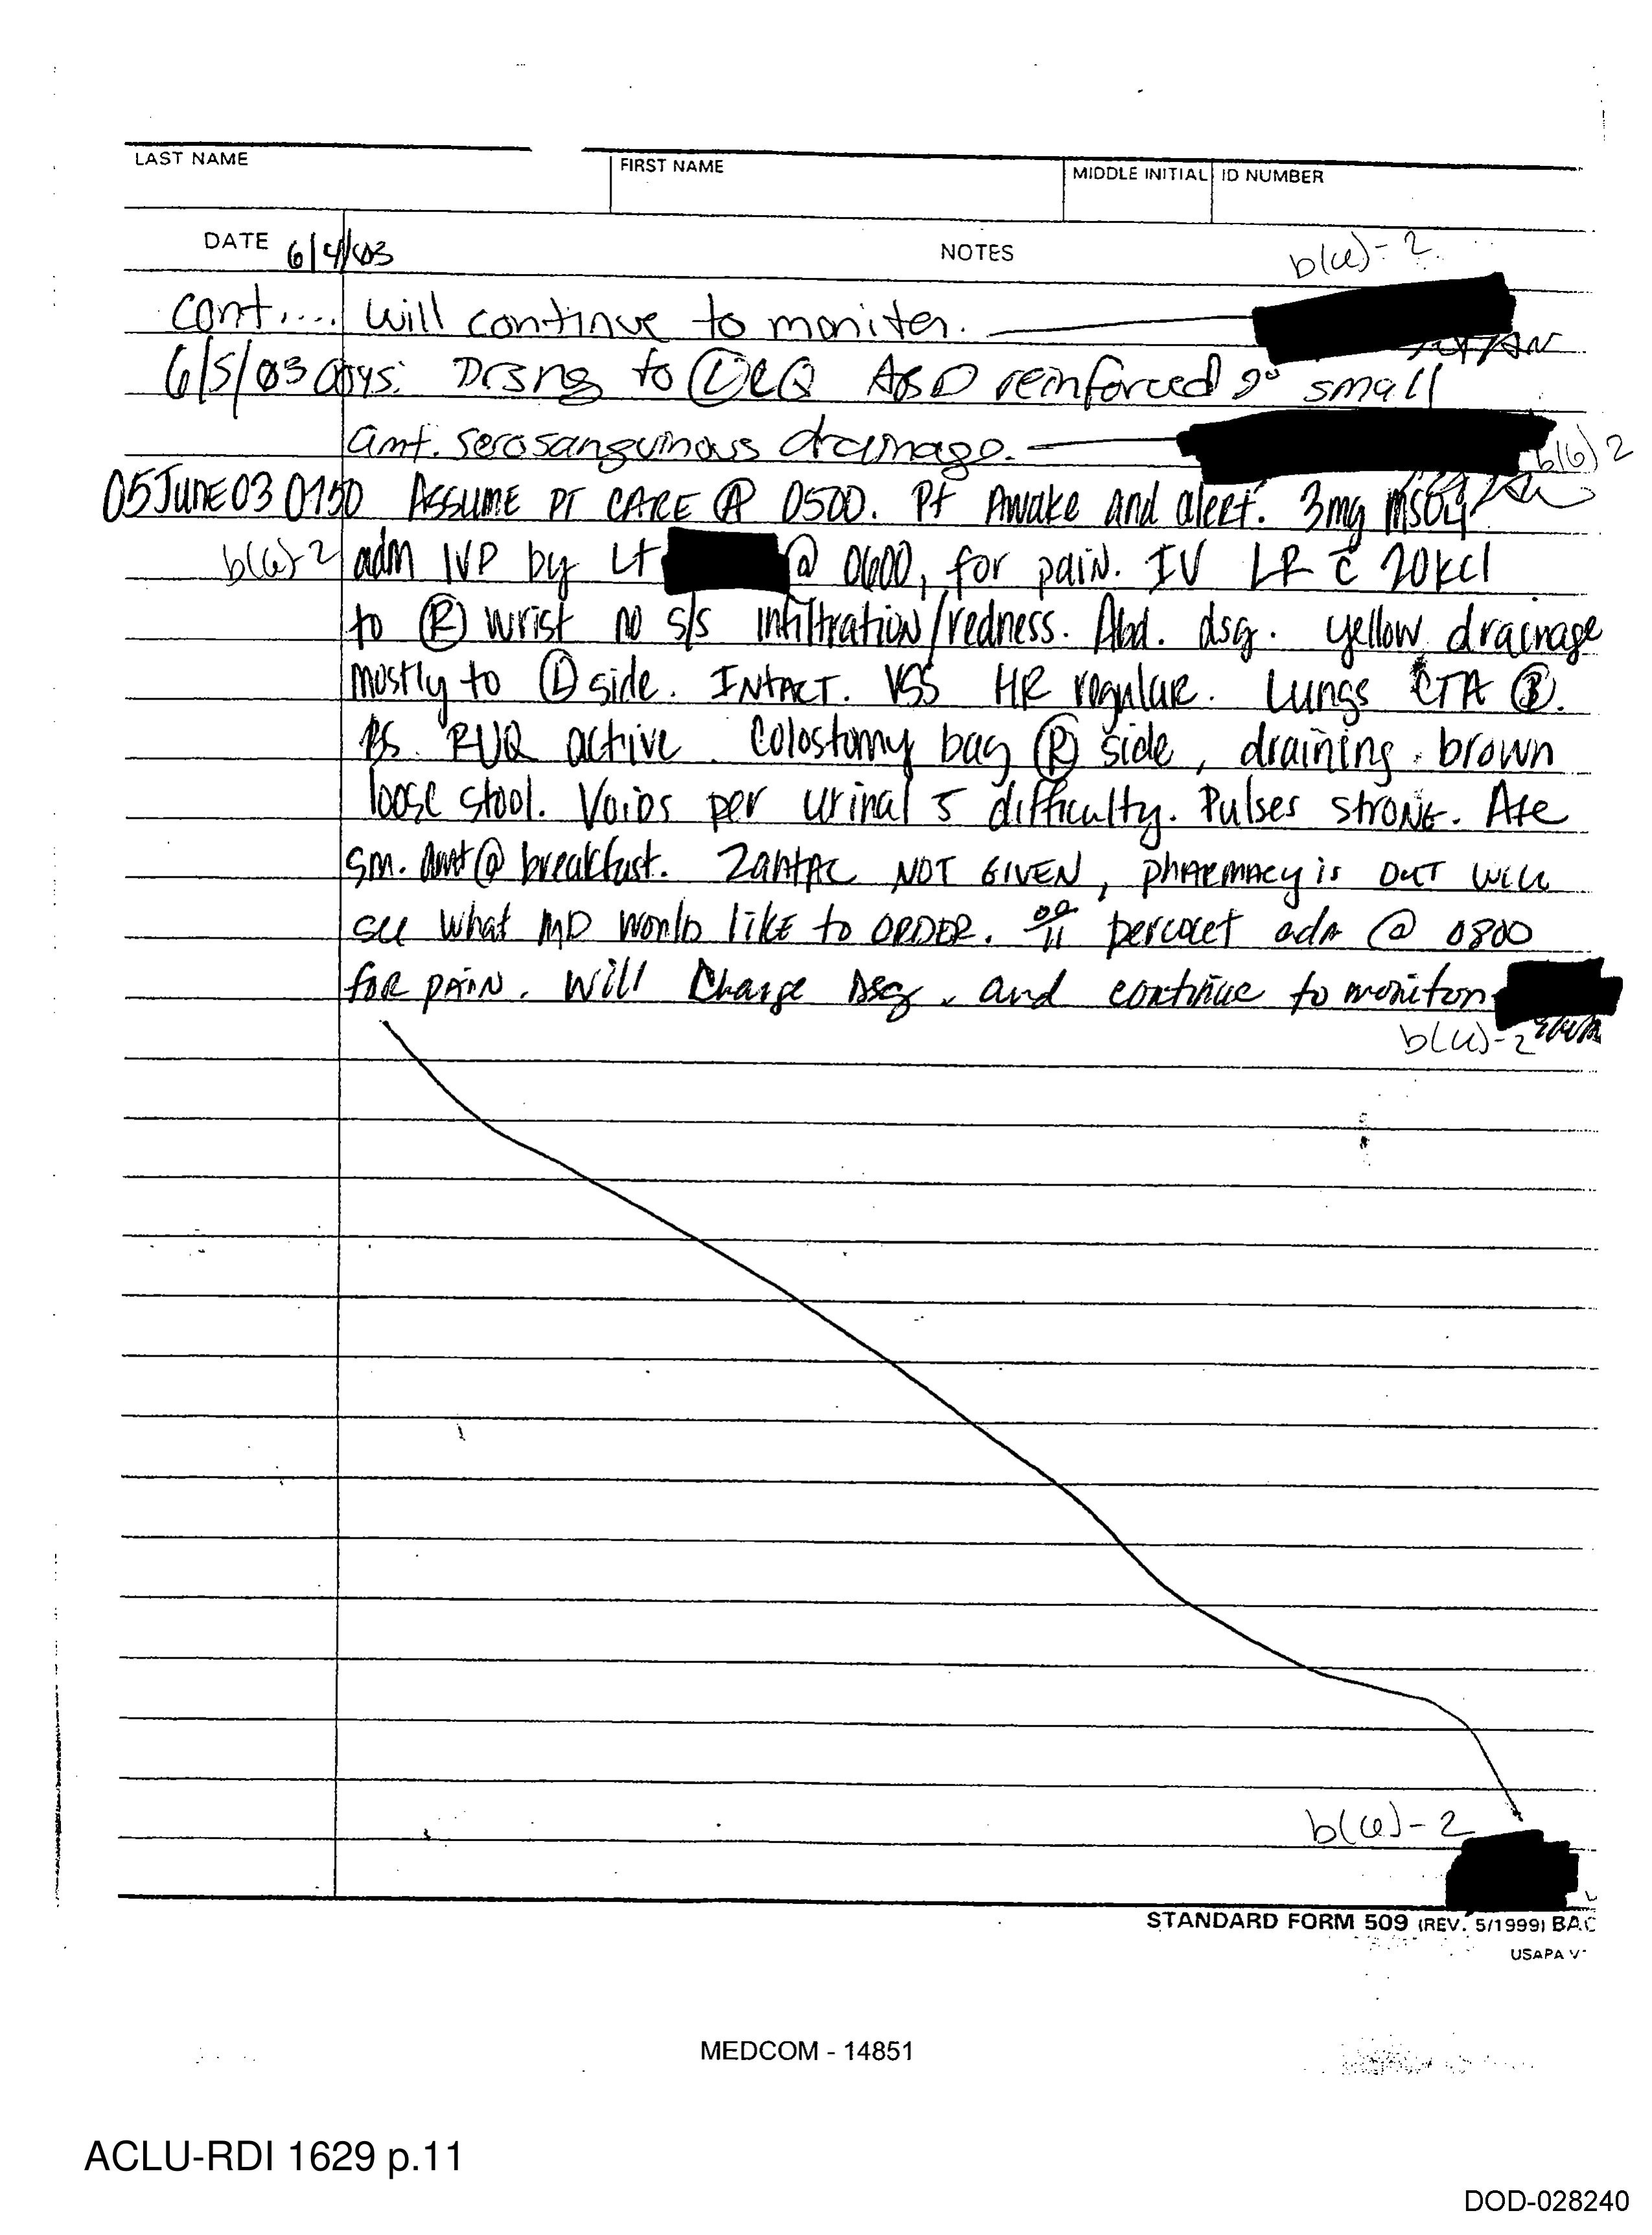 LAST NAME FIRST NAME MIDDLE INITIAL ID NUMBER
DATE 6/4/03 NOTES b(6)-2
cont.... will continue to moniter.
6/5/03 0045: Drsng to (L) LQ ABD reinforced 2° small
amt. serosanguinous drainage. b(6)2
05JUNE03 0750 ASSUME PT CARE @ 0500. Pt Awake and alert. 3mg MSO4
b(6)-2 adm IVP by Lt @ 0600, for pain. IV LR c̄ 20kcl
to (R) wrist no s/s infiltration/redness. Abd. dsg. yellow drainage
mostly to (L) side. INTACT. VSS HR regular. Lungs CTA (B).
BS RUQ active. Colostomy bag (R) side, draining brown
loose stool. Voids per urinal s̄ difficulty. Pulses strong. Ate
sm. amt @ breakfast. Zantac NOT GIVEN, pharmacy is out will
see what MD would like to ORDER. percocet adm @ 0800
for pain. Will change dsg. and continue to moniton
b(6)-2
b(6)-2
STANDARD FORM 509 (REV. 5/1999) BAC
USAPA V
MEDCOM - 14851
ACLU-RDI 1629 p.11
DOD-028240